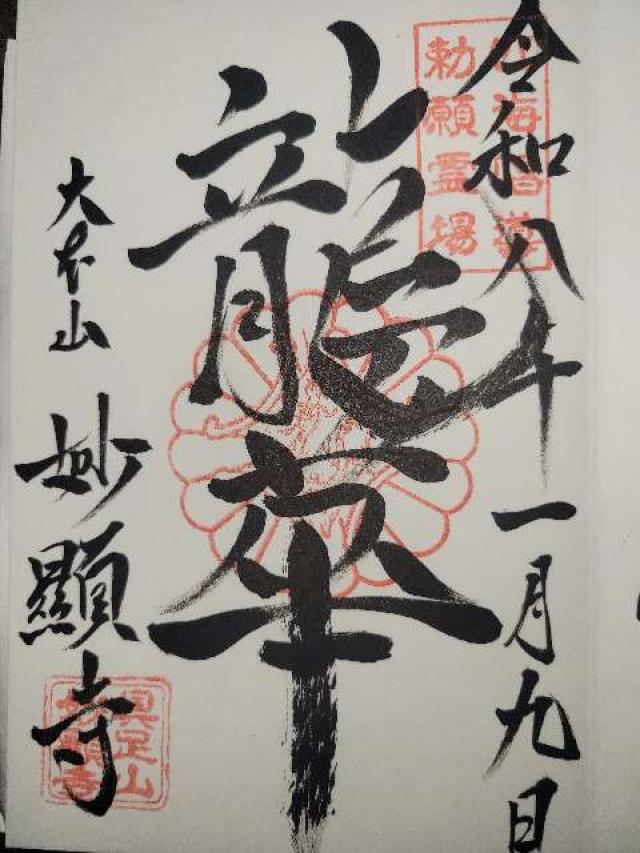 四海唱導
勅願霊場
令和八年一月九日
龍華
大本山
妙顯寺
具足山
妙顯寺